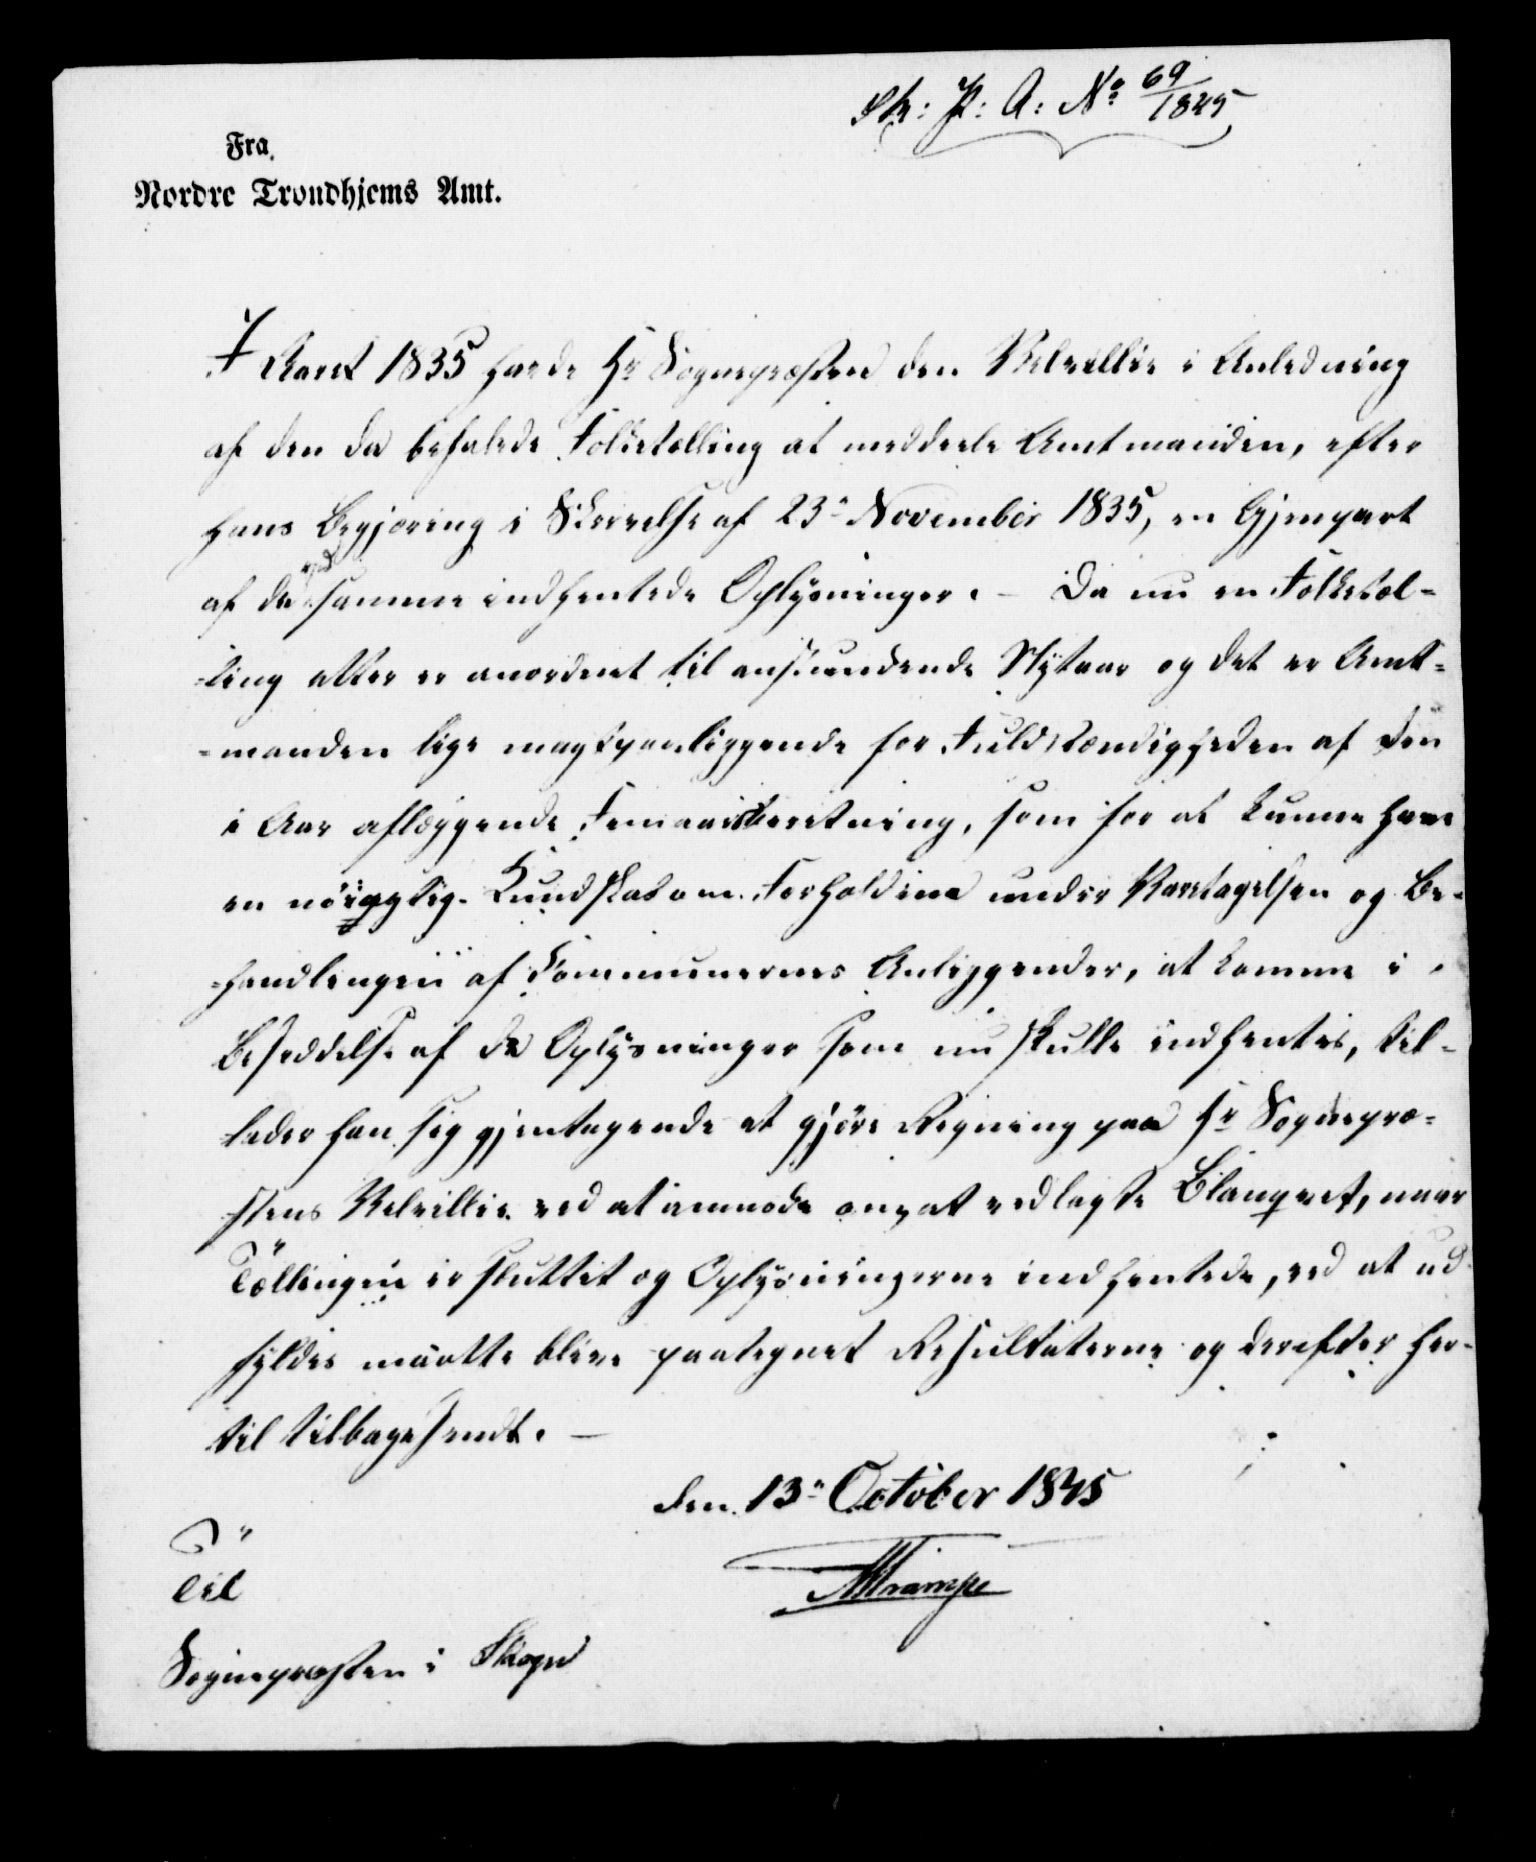 Sk: P: A: No 69/1845
Fra
Nordre Trondhjems Amt.
I Aaret 1835 havde Hr Sognepræsten den Velvillie i Anledning
af den da befalede Folketælling at meddeele Amtmanden, efter
hans Begjæring i Skrivelse af 23de November 1835, en Gjenpart
af de ved samme indhentede Oplysninger. – Da nu en Folketæl-
-ling atter er anordnet til anstundende Nytaar og det er Amt-
-manden lige magtpaaliggende for Fuldstændigheden af den
i Aar aflæggende Femaarsberetning, som for at kunne have
en nöiagtig Kundskab om Forholdene under Varetagelsen og Be-
-handlingen af Communernes Anliggender, at komme i
Besiddelse af de Oplysninger som nu skulle indhentes, til-
-lader han sig gjentagende at gjöre Regning paa Hr Sognepræ-
-stens Velvillie ved at anmode om, at vedlagte Blanqvet, naar
Tællingen er sluttet og Oplysningerne indhentede, ved at ud-
fyldes maatte blive paategnet Resultaterne og derefter her-
til tilbagesendt. –
den 13de October 1845
Trampe
Til
Sognepræsten i Skogn